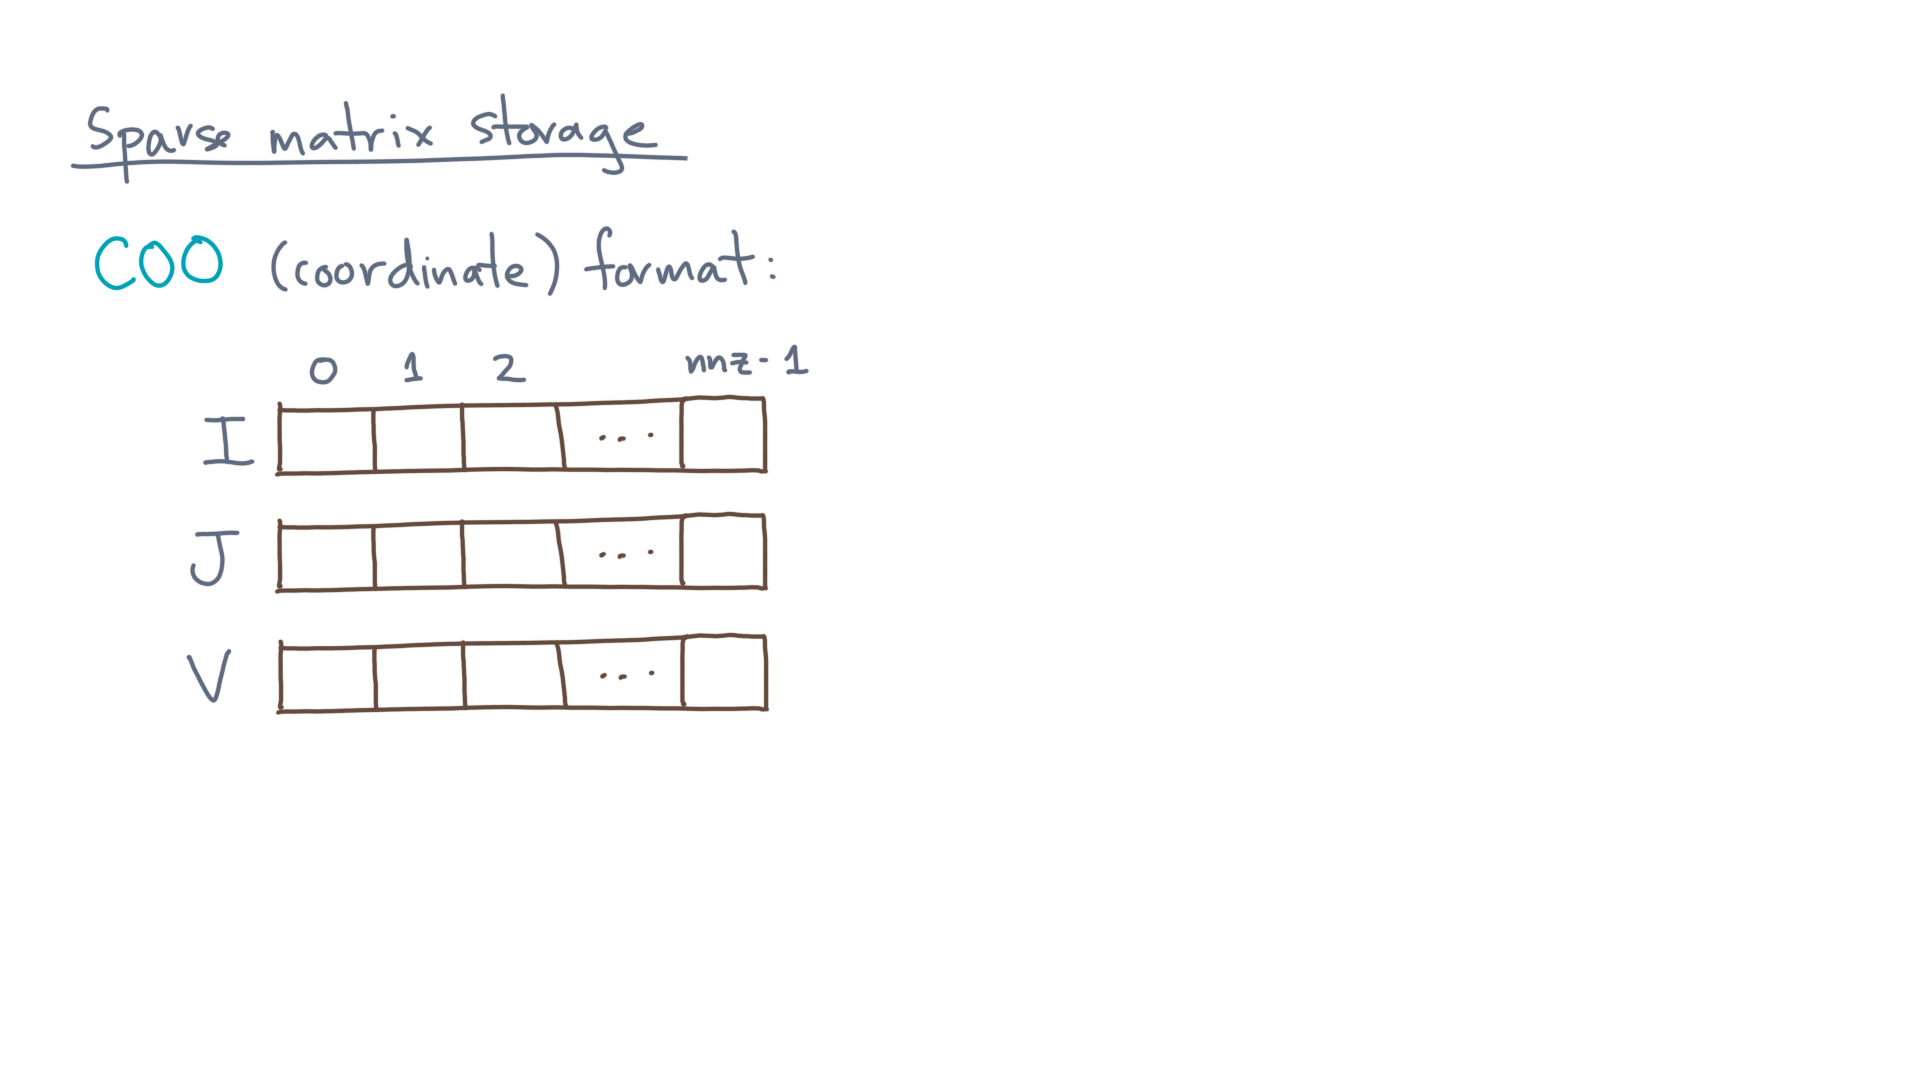 Sparse matrix storage
COO (coordinate) format:
0 1 2 nnz-1
I ...
J ...
V ...